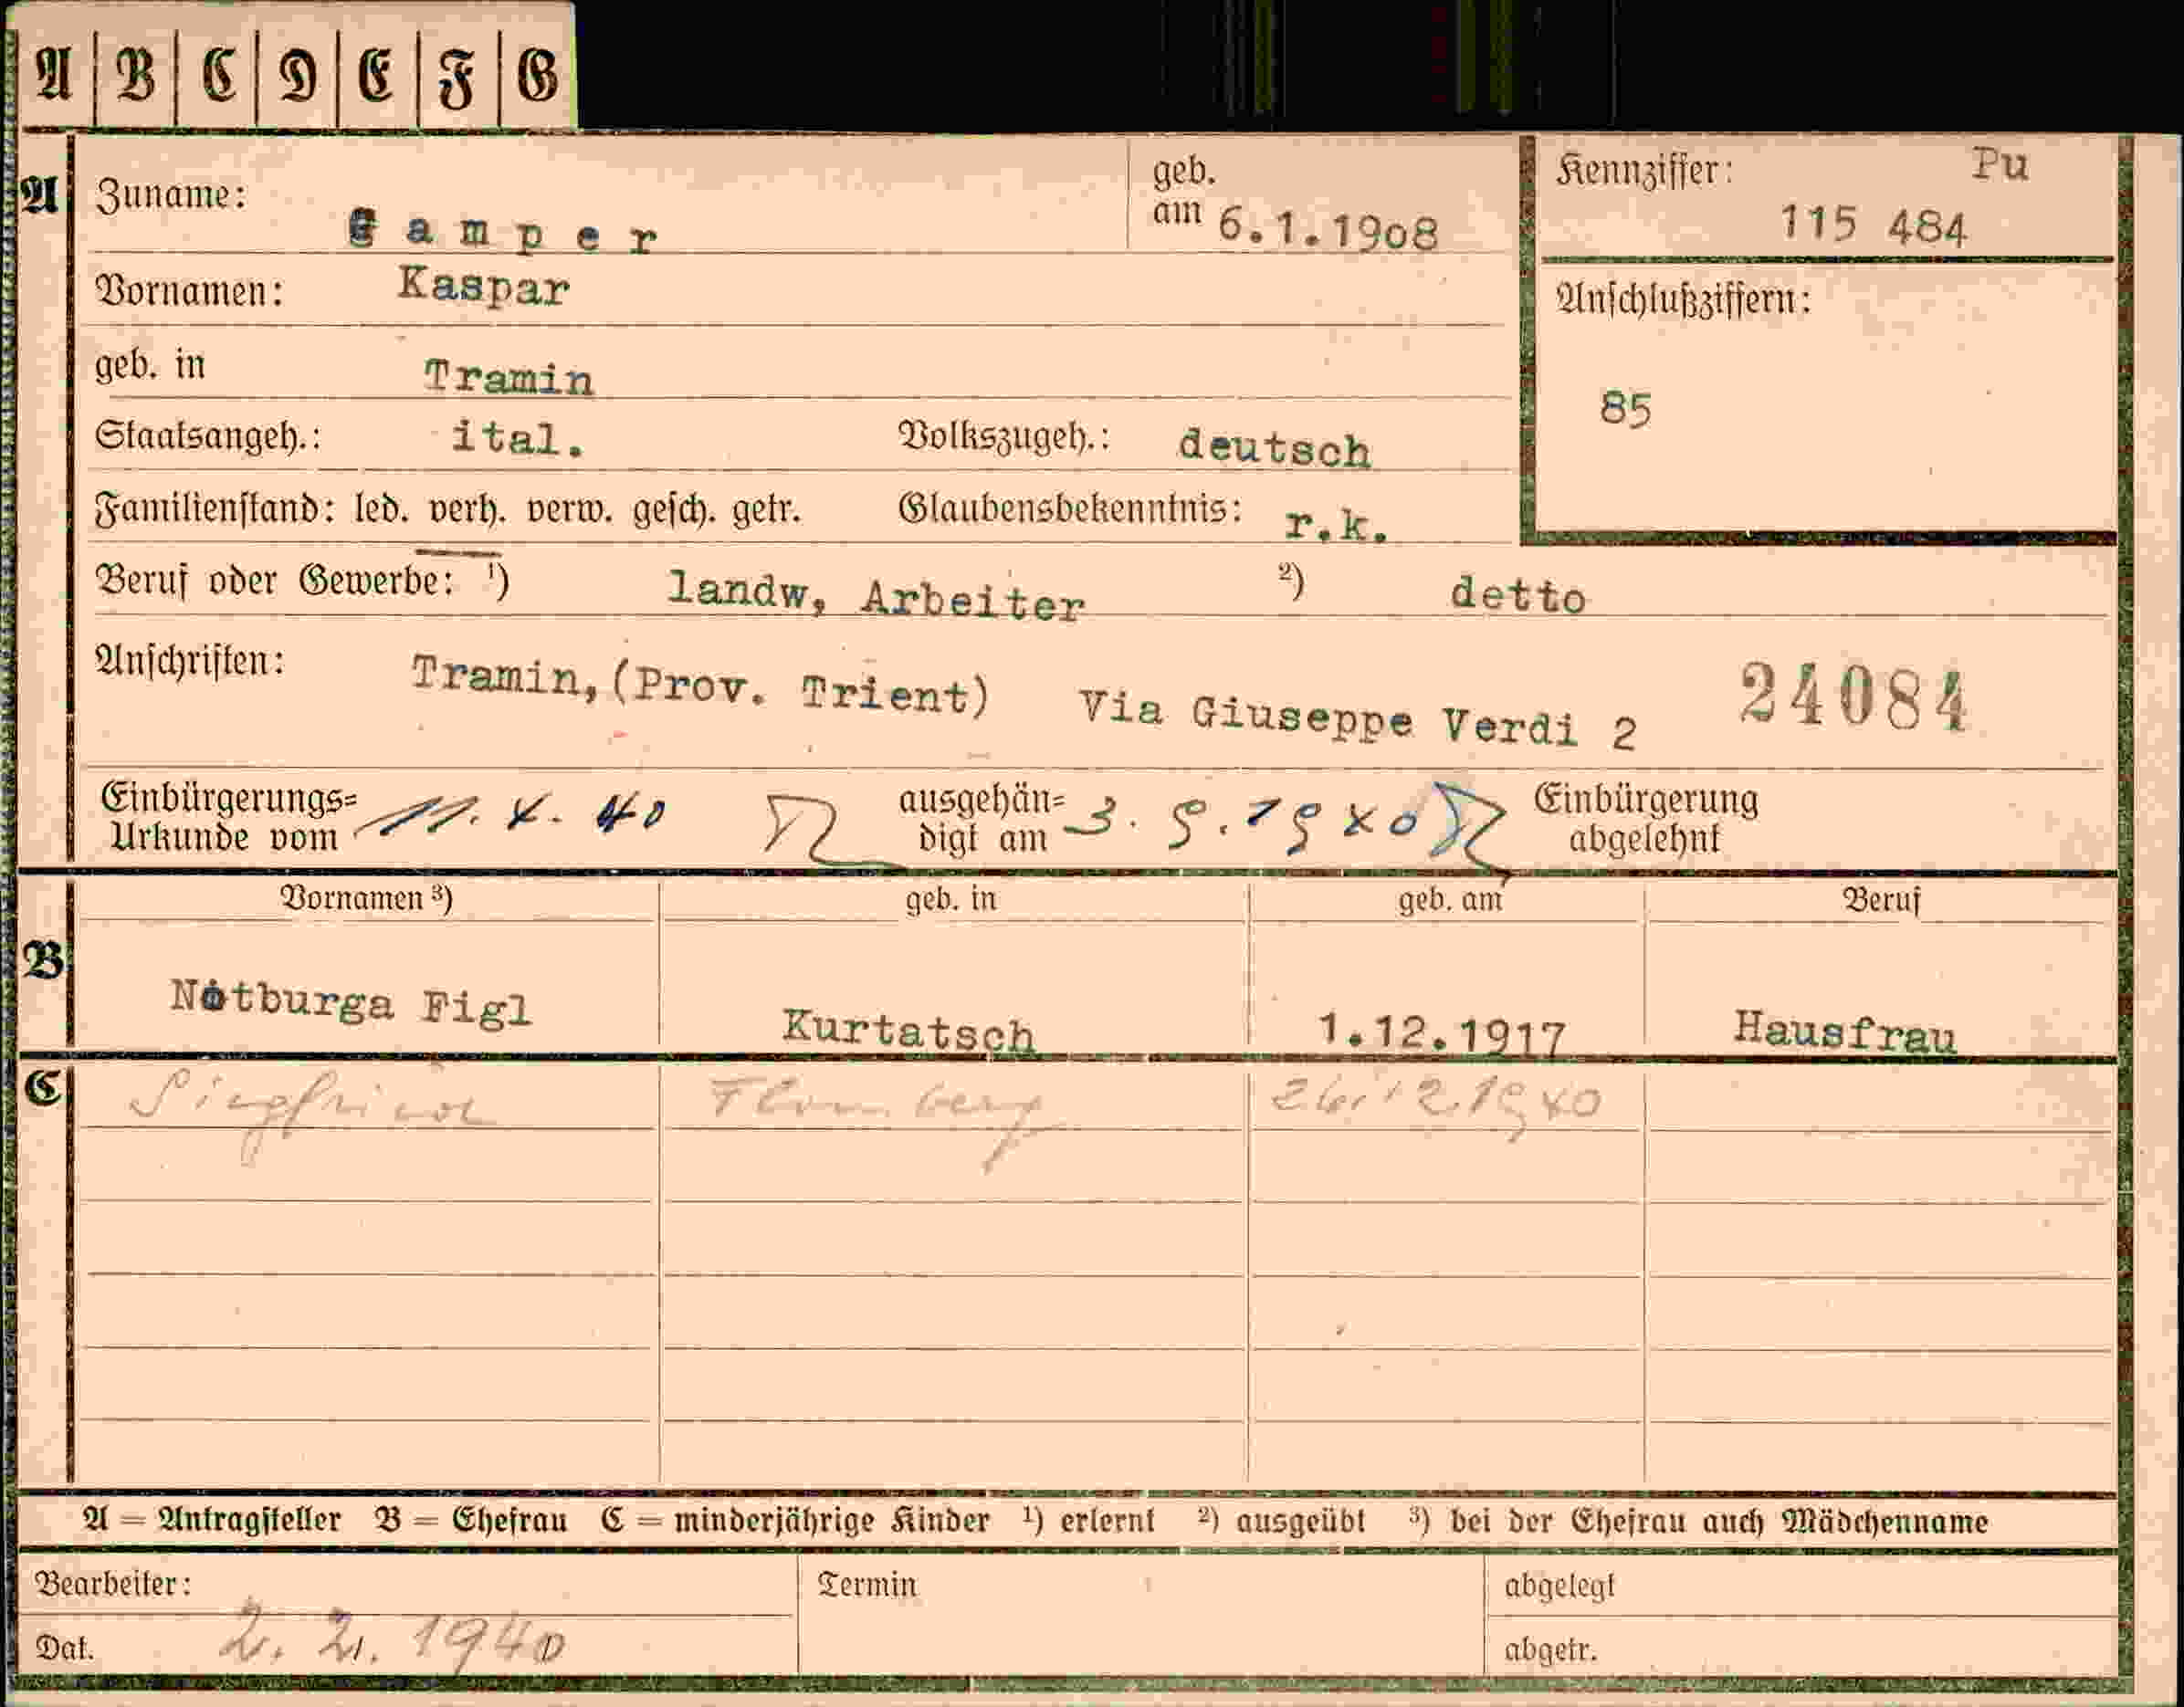 A B C D E F G
A Zuname: Gamper geb. am 6.1.1908 Kennziffer: Pu 115 484
Vornamen: Kaspar
geb. in Tramin Anschlußziffern: 85
Staatsangeh.: ital. Volkszugeh.: deutsch
Familienstand: led. verh. verw. gesch. getr. Glaubensbekenntnis: r.k.
Beruf oder Gewerbe: 1) landw, Arbeiter 2) detto
Anschriften: Tramin, (Prov. Trient) Via Giuseppe Verdi 2 24084
Einbürgerungs= ausgehän= Einbürgerung
Urkunde vom 11. 4. 40 digt am 3. 9. 1940 abgelehnt
Vornamen 3) geb. in geb. am Beruf
B Notburga Figl Kurtatsch 1.12.1917 Hausfrau
C Siegfried 26.12.1940
A = Antragsteller B = Ehefrau C = minderjährige Kinder 1) erlernt 2) ausgeübt 3) bei der Ehefrau auch Mädchenname
Bearbeiter: Termin abgelegt
Dat. 2. 2. 1940 abgetr.